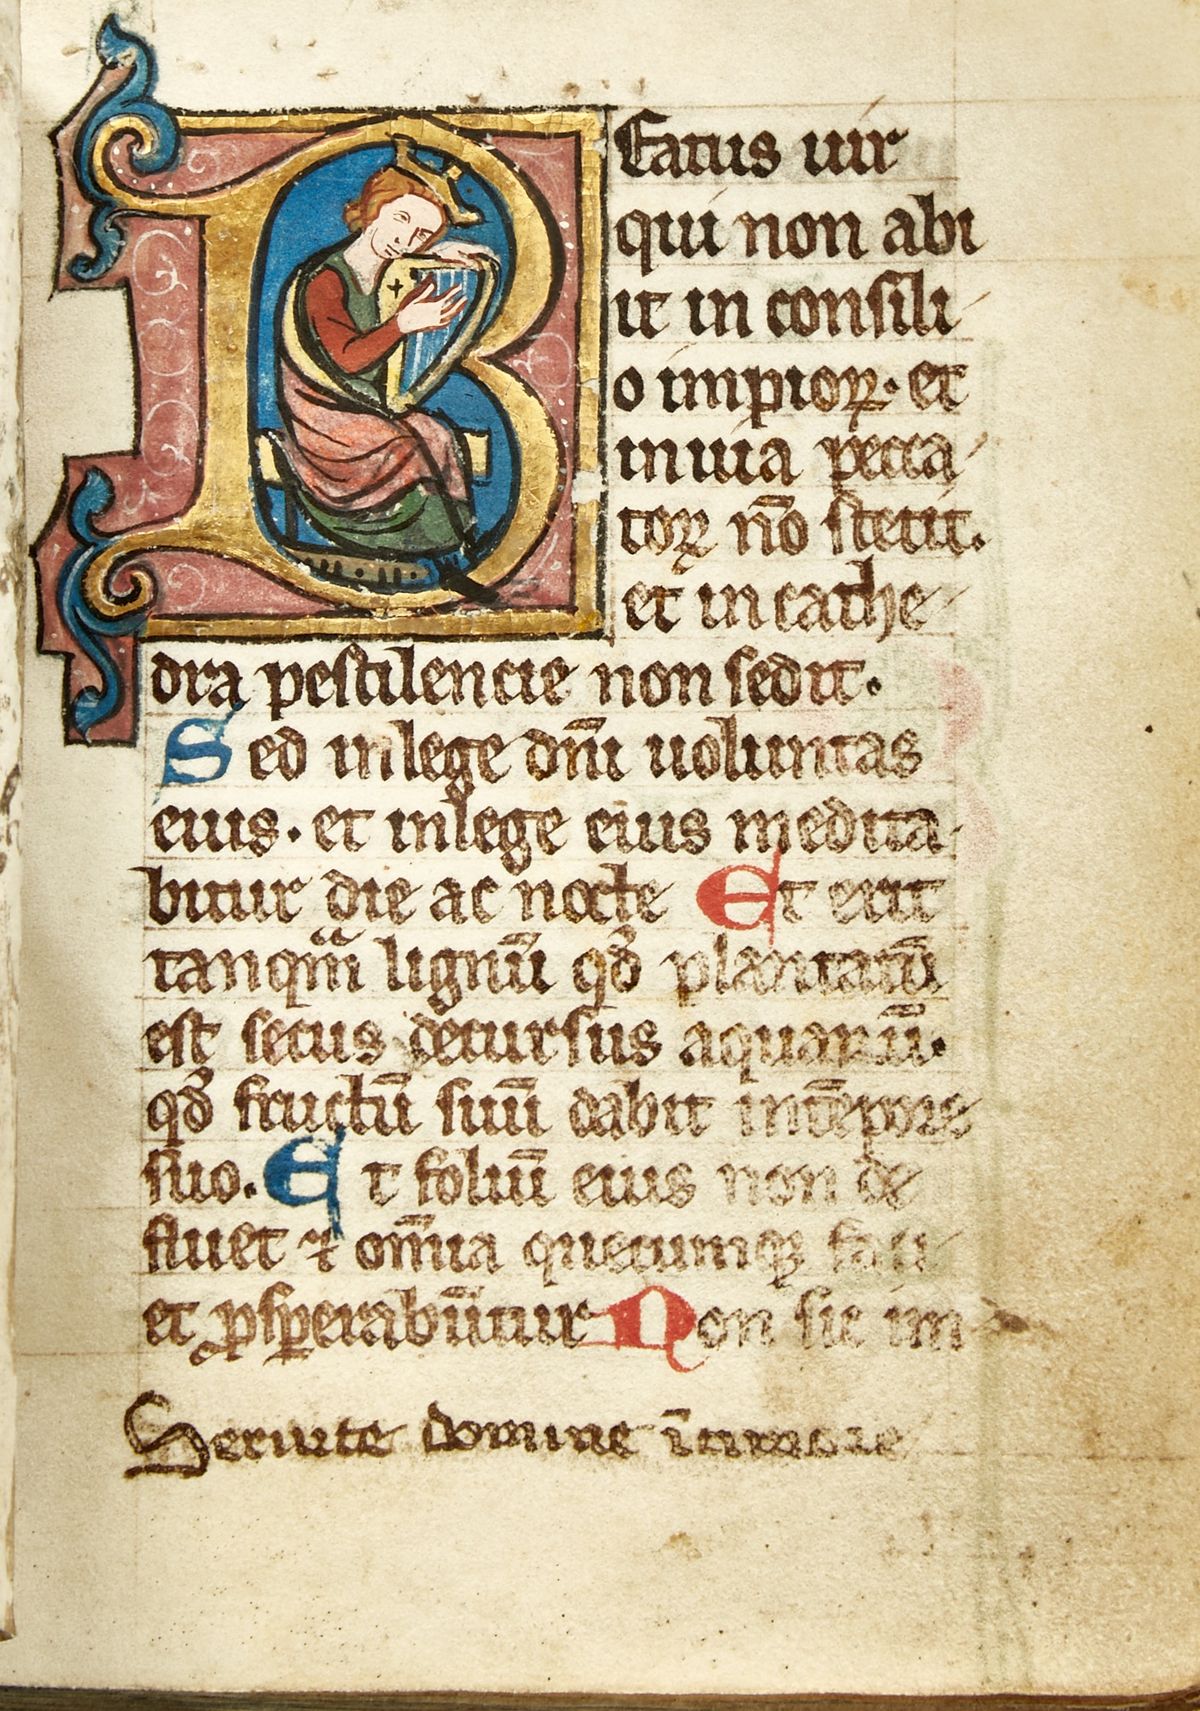 BEatus uir
qui non abi
it in consili
o impioꝝ· et
in uia pecca
toꝝ nō stetit.
et in cathe
dra pestilencie non sedit.
Sed in lege dn̄i uoluntas
eius· et in lege eius medita
bitur die ac nocte Et erit
tanqm̄ lignū qd̓ plantatū
est secus decursus aquarū.
qd̓ fructū suū dabit in tēpore
suo. Et foliū eius non de
fluet ⁊ om̄ia quecumqꝫ faci
et ꝓsꝑabūtur Non sic im
Seruite domine ī